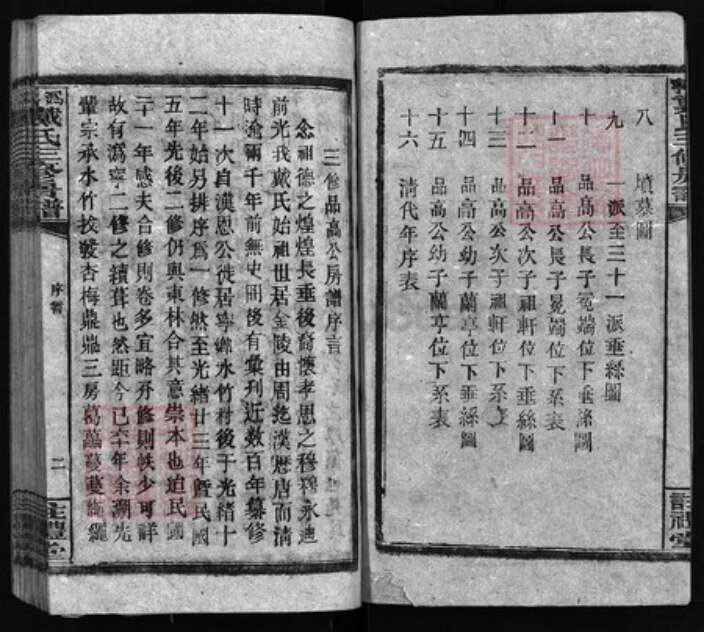 八 墳墓圖
九 一派至三十一派垂絲圖
十 品高公長子冕端位下垂絲圖
十一 品高公長子冕端位下系表
十二 品高公次子祖軒位下垂絲圖
十三 品高公次子祖軒位下系表
十四 品高公幼子蘭亭位下垂絲圖
十五 品高公幼子蘭亭位下系表
十六 清代年序表
三修品高公房譜序言
念祖德之煌煌長垂後裔懷孝思之穆穆永迪
前光我戴氏始祖世居金陵由周迄漢歷唐而清
時淪兩千年前無史冊後有彙刊近数百年纂修
十一次自漢恩公徙居寧鄉水竹村後于光緒十
二年始另排序為一修然至光緒廿三年暨民國
五年先後二修仍與東林合其意崇本也迨民國
三十一年感夫合修則卷多宜略分修則帙少可詳
故有溈寧二修之續葺也然距今已六年余湖先
輩宗承水竹技發杏梅鼎鼎三房葛藟蔓蔓綿
戴氏三修房譜
序言
二
註禮堂